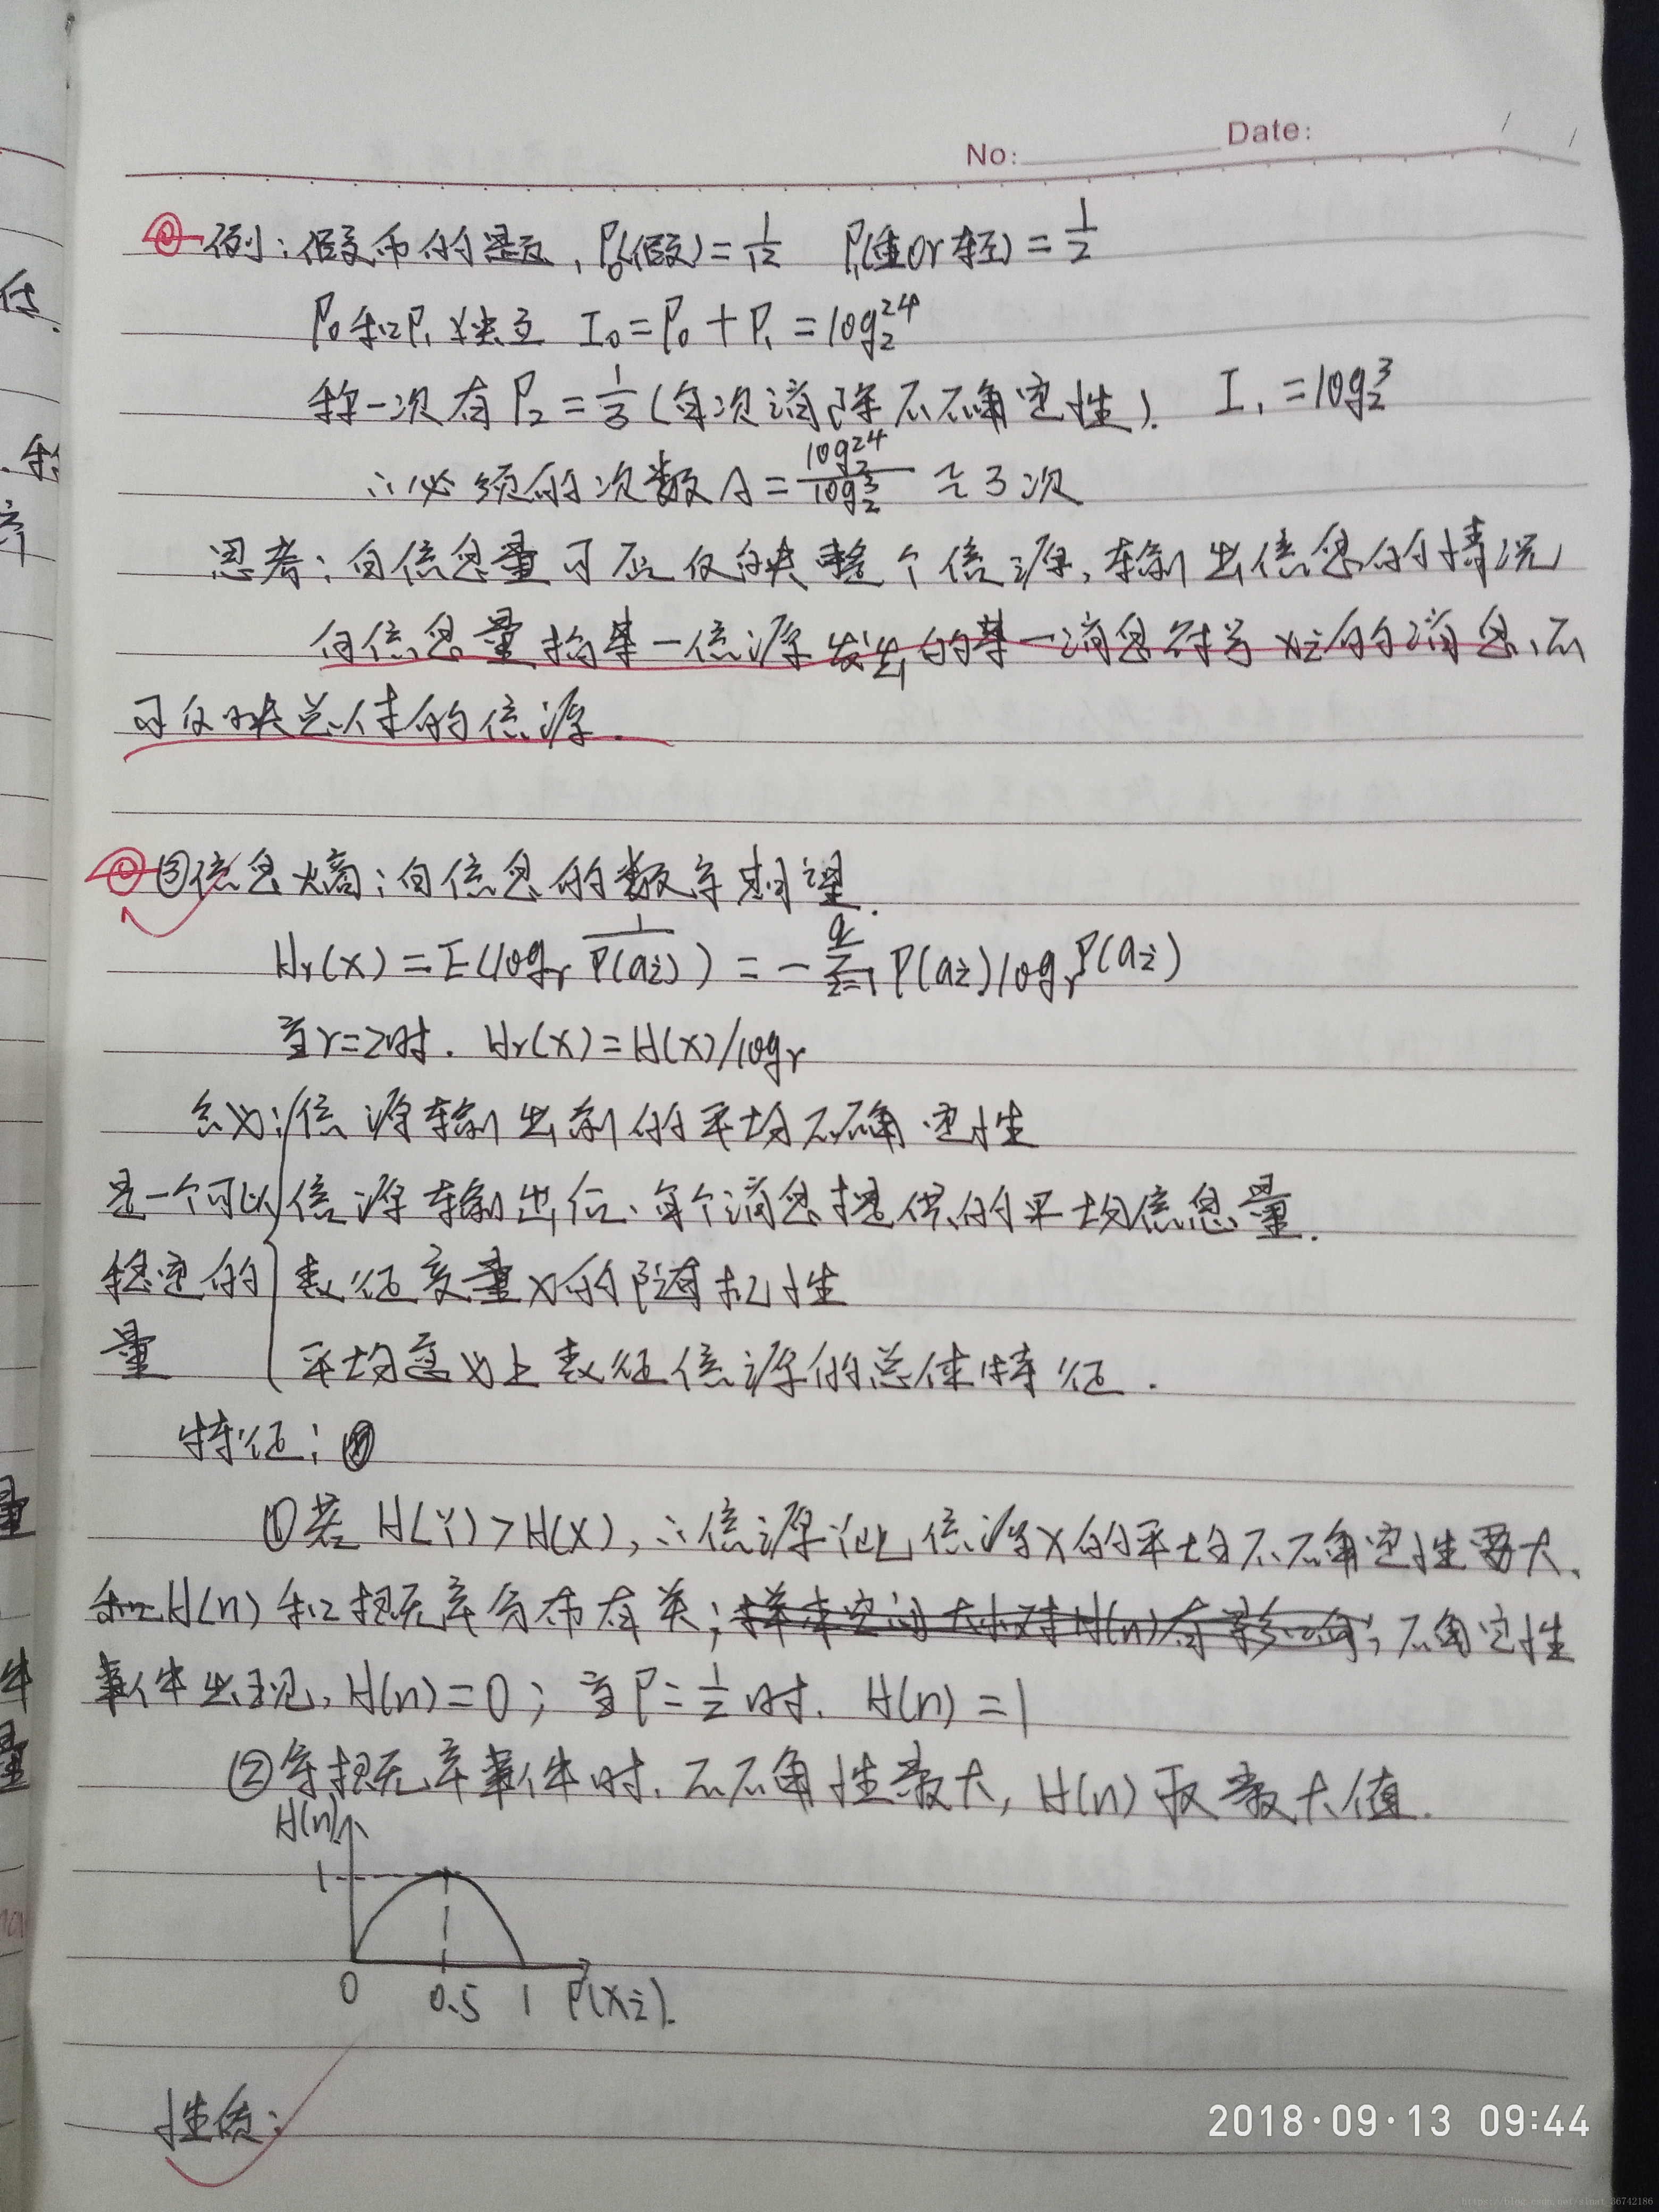 No: Date:
例:假币的是否, P₀(假)=1/12 P₁(重or轻)=1/2
P₀和P₁独立 I₀=P₀+P₁=log₂24
称一次有P₂=1/3(每次消除不确定性). I₁=log₂3
∴必须的次数 =log₂24/log₂3 ≈3次
思考:自信息量可否反映整个信源,输出信息的情况
自信息量指某一信源发出的某一消息符号对应的消息,不
可反映总体的信源.
③信息熵:自信息的数学期望.
Hr(X)=E(logr 1/P(ai))=-∑(i=1→q)P(ai)logrP(ai)
当r=2时. Hr(X)=H(X)/logr
含义:信源输出前的平均不确定性
是一个可以 信源输出后、每个消息提供的平均信息量.
稳定的 表征变量X的随机性
量 平均意义上表征信源的总体特征.
特征:
①若H(Y)>H(X),∴信源Y比信源X的平均不确定性要大、
H(n)和概率分布有关;样本空间大小对H(n)有影响;不确定性
事件出现,H(n)=0;当P=1/2时.H(n)=1
②等概率事件时.不确性最大,H(n)取最大值.
H(n)
1
0 0.5 1 P(Xi).
性质:
2018·09·13 09:44